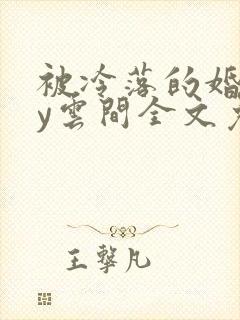 被冷落的婚
y雲間全文
王擎凡